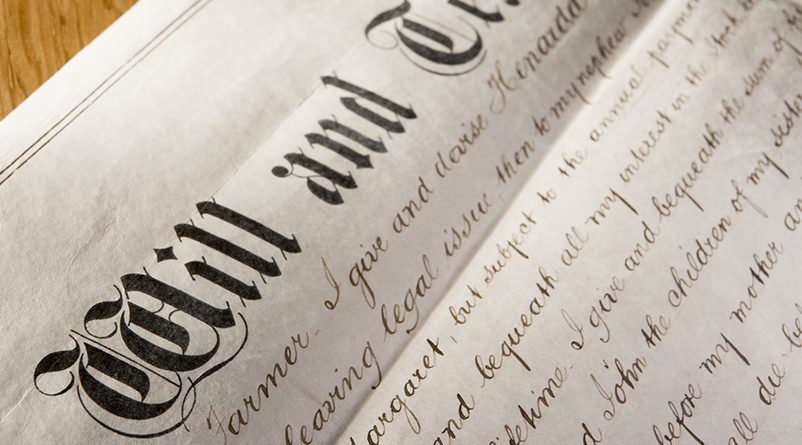 Will and Te
Farmer - I give and devise Henarda
leaving legal issue, then to my nephew
Margaret, but subject to the annual payment
and bequeath all my interest in the stock
lifetime - I give and bequeath the sum of
and John the children of my sister
before my mother
all die